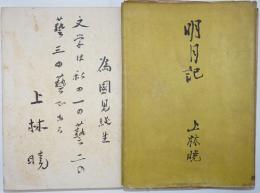 為國見純生
文学は私の一の藝二の
藝三の藝である
上林暁
明月記
上林暁